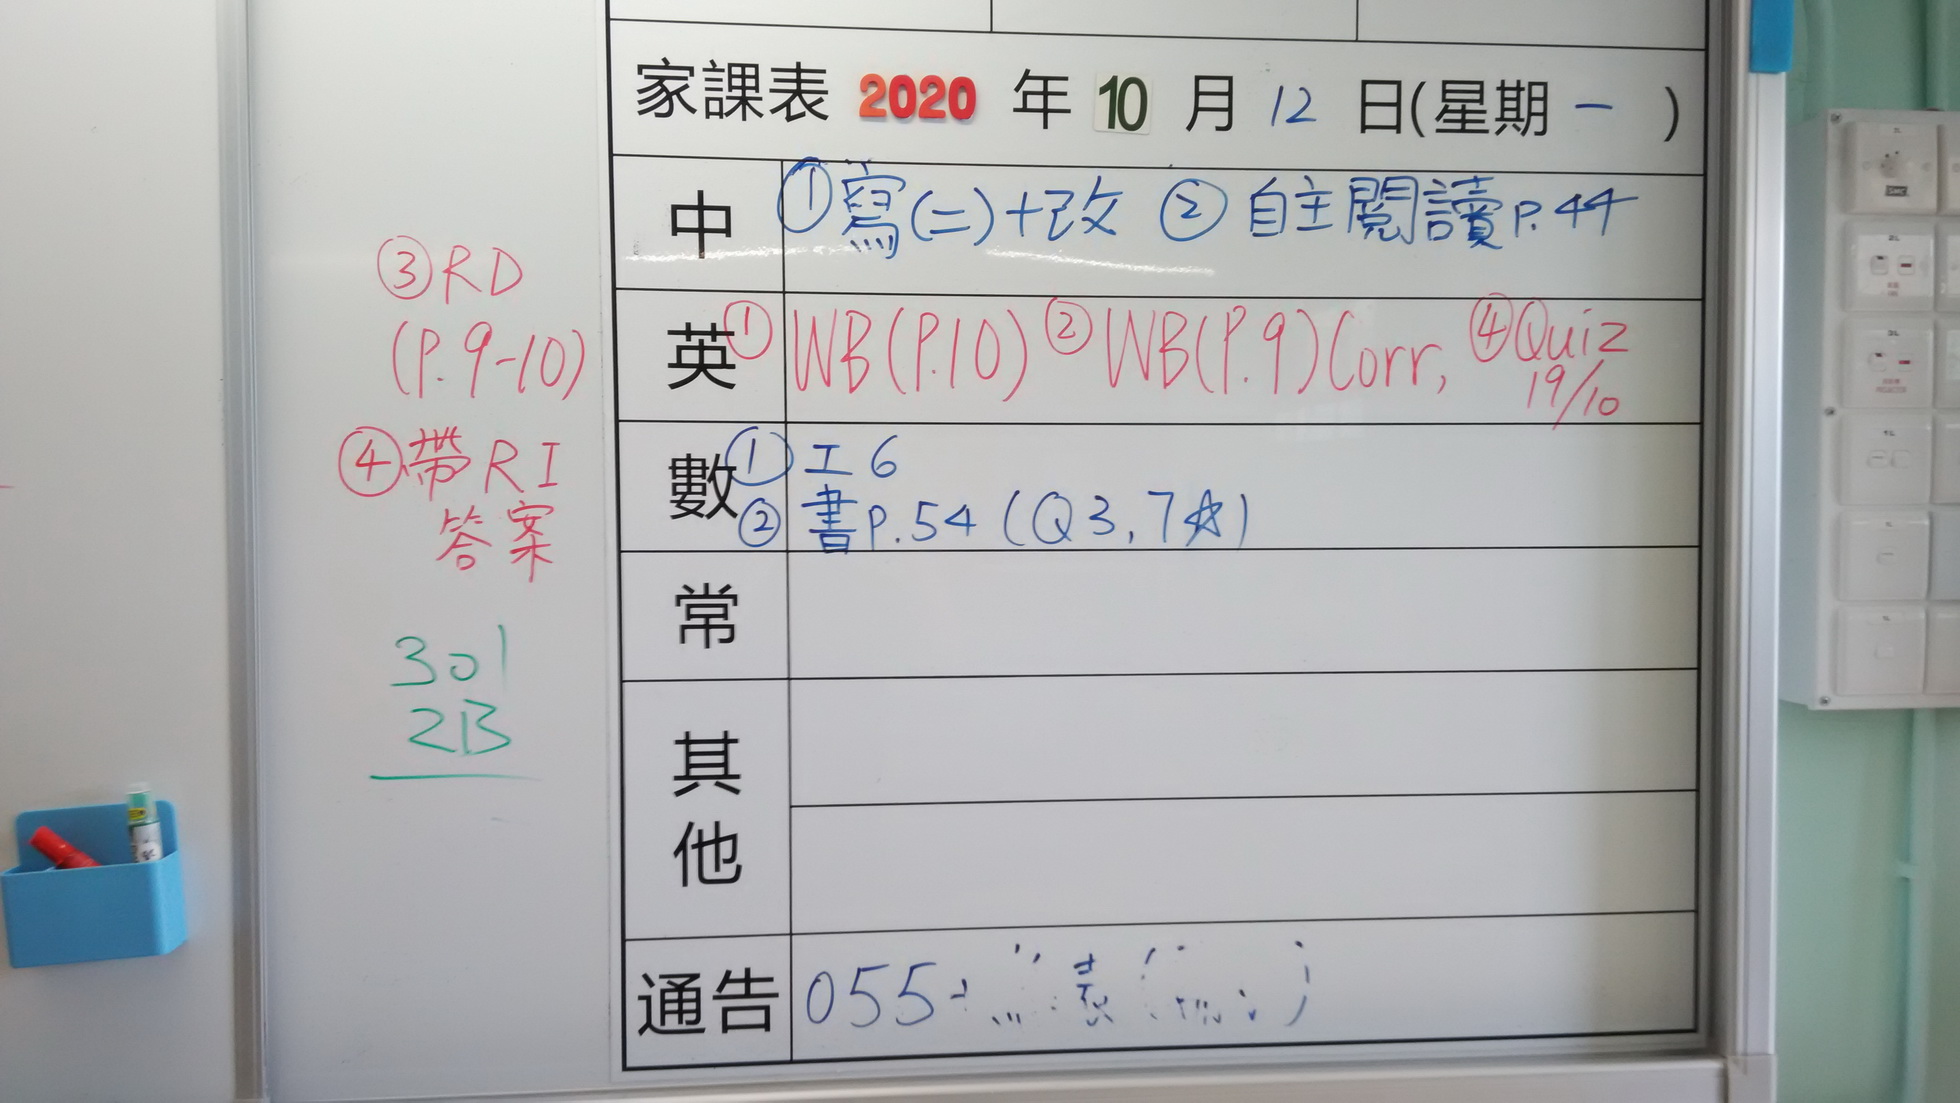 家課表 2020 年 10 月 12 日(星期 一 )
中 ①寫(二)+改 ②自主閱讀P.44
英 ①WB(P.10) ②WB(P.9)Corr, ④Quiz
19/10
數 ①工6
②書P.54(Q3,7☆)
常
其
他
通告 055+
表
③RD
(P.9-10)
④帶RI
答案
301
2B